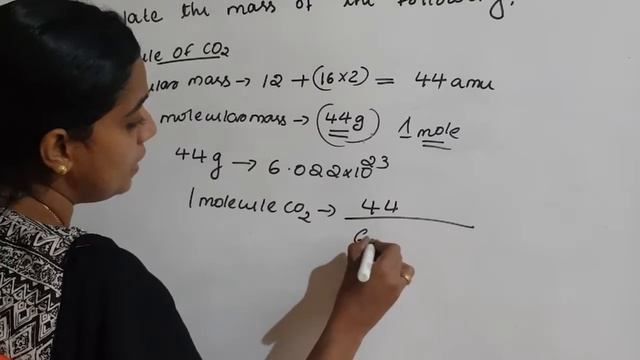 the mass of the following.
OF CO₂
mass → 12 + (16×2) = 44 amu
molecular mass → (44g) 1 mole
44g → 6.022×10²³
1 molecule CO₂ → 44